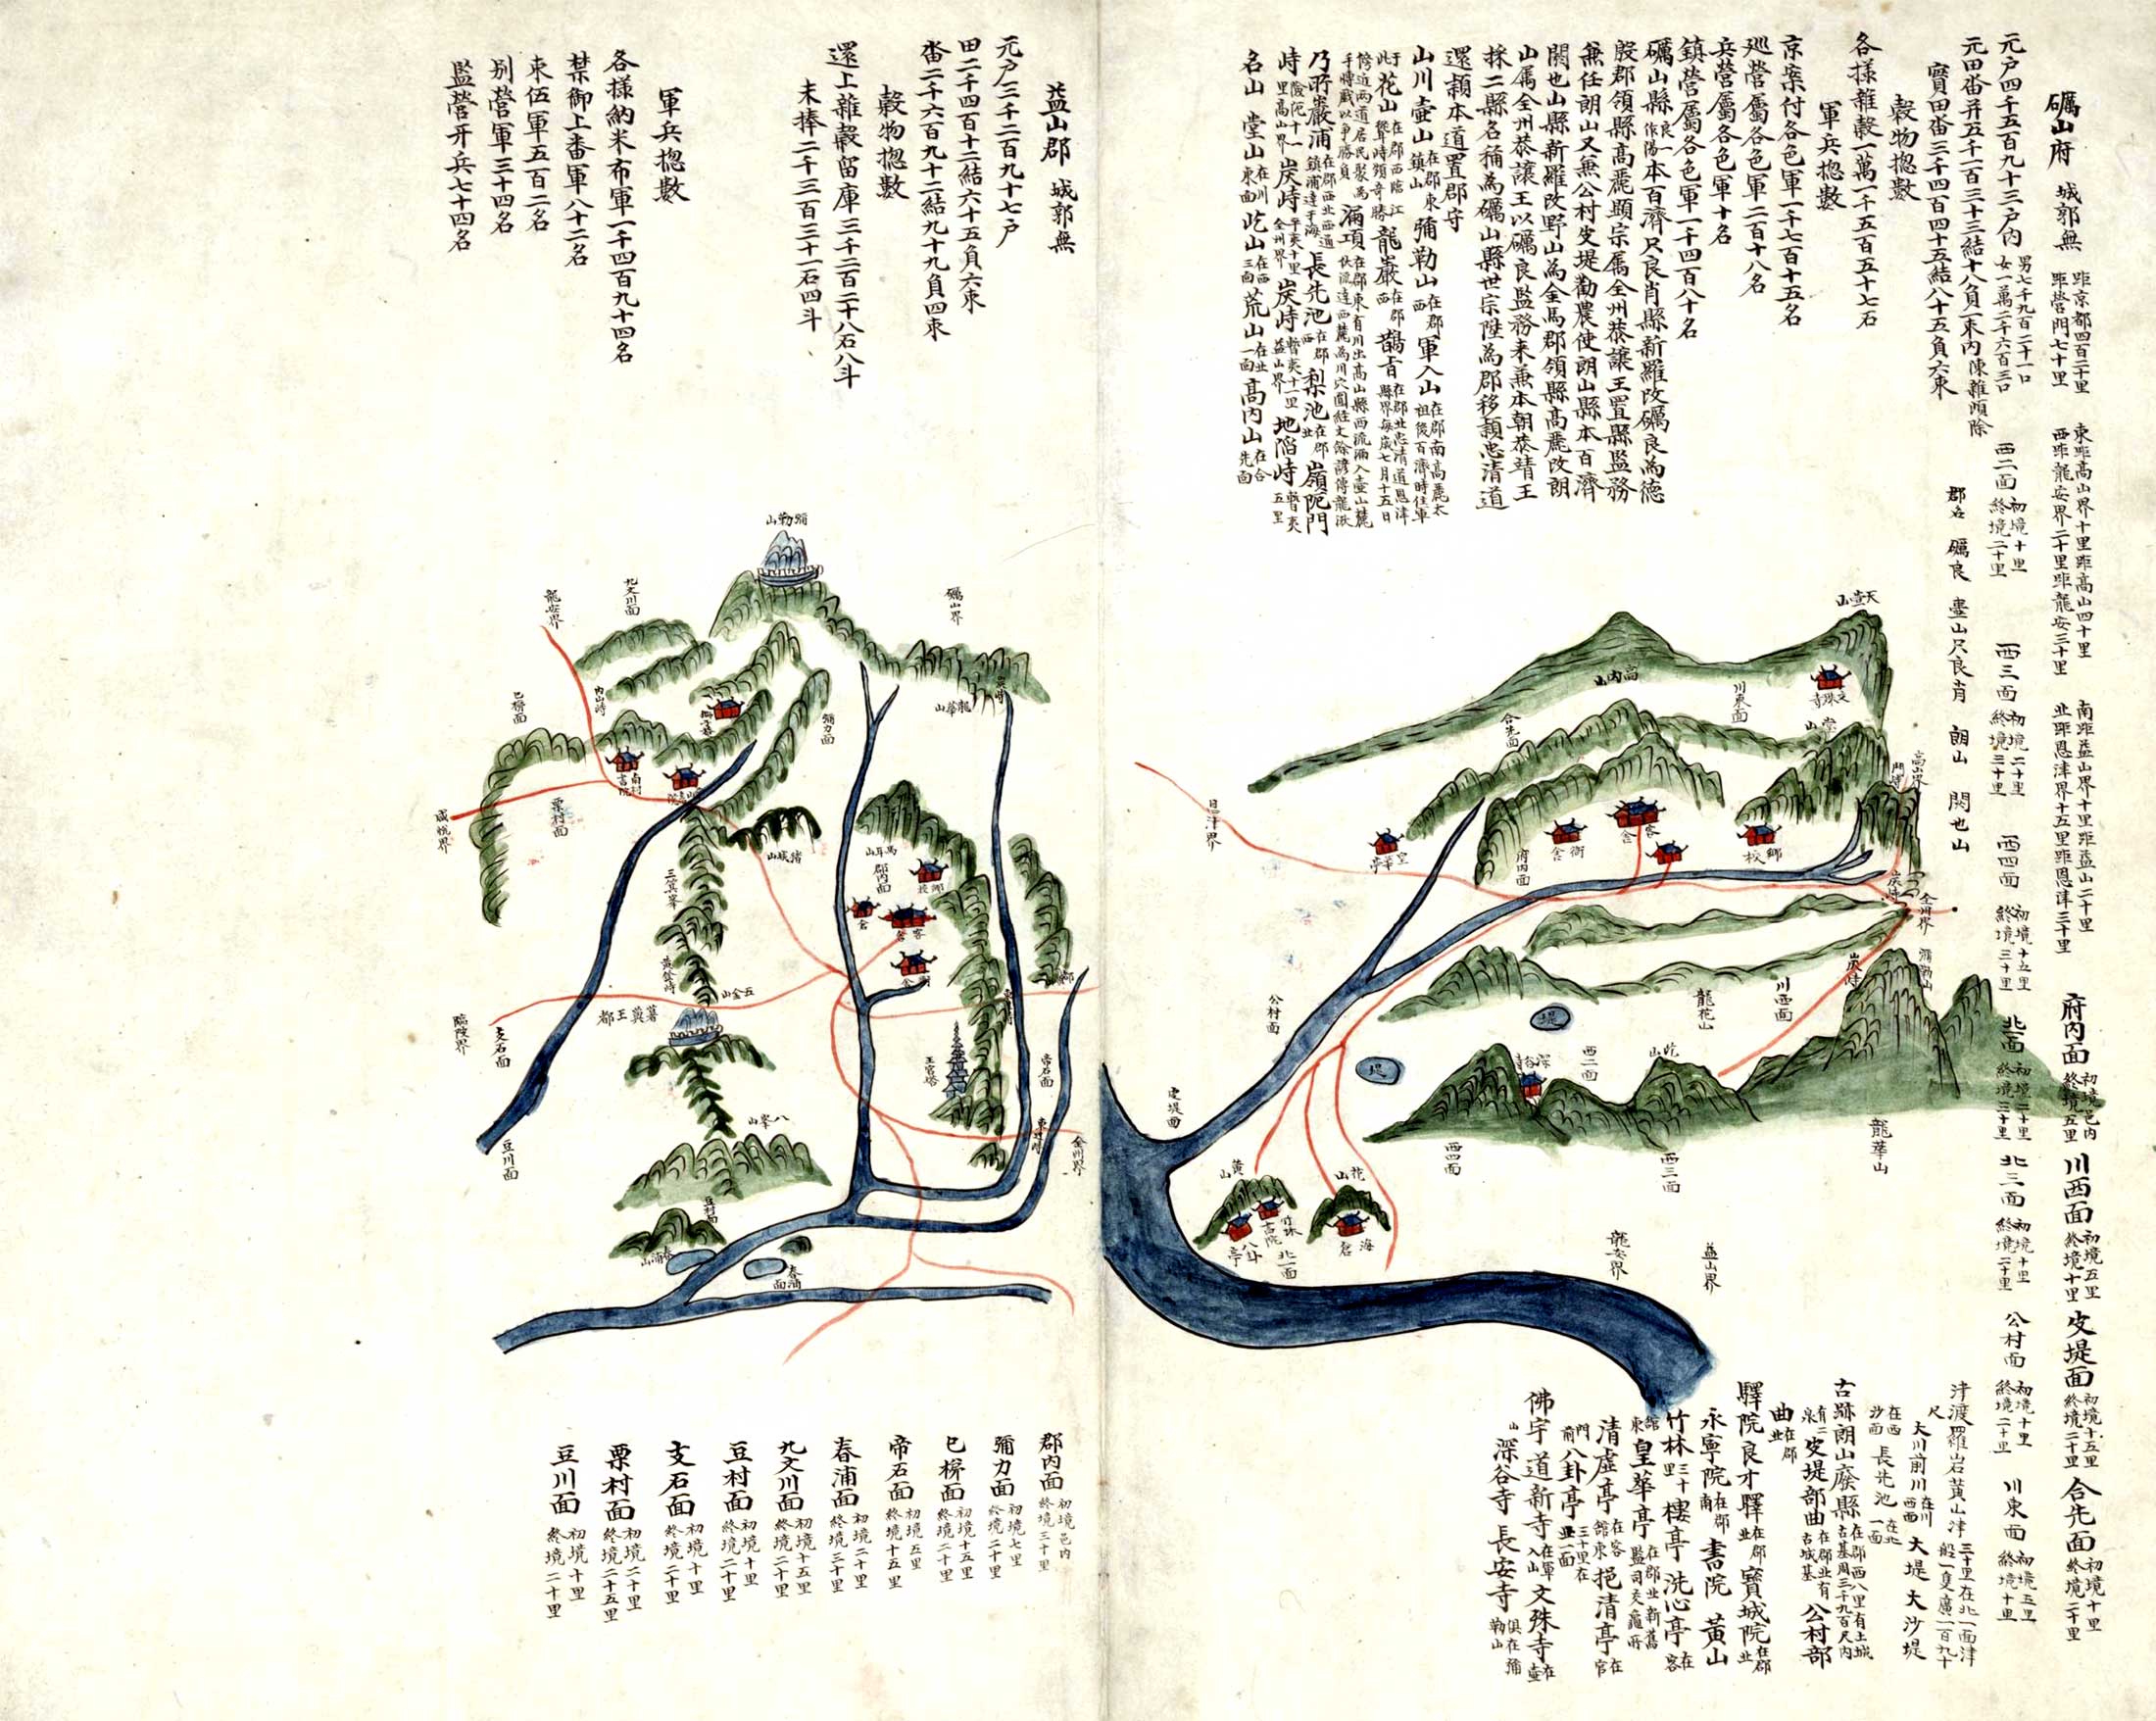 礪山府 城郭無
距京都四百二十里
距營門七十里
東距高山界十里距高山四十里
西距龍安界二十里距龍安三十里
南距益山界十里距益山二十里
北距恩津界十五里距恩津三十里
府內面 初境邑內
終境五里
川西面 初境五里
終境十里
皮堤面 初境十五里
終境二十里
合先面 初境十里
終境二十里
元户四千五百九十三户內
男七千九百二十一口
女一萬二千六百三口
西二面 初境十里
終境二十里
西三面 初境二十里
終境三十里
西四面 初境十五里
終境三十里
北面 初境二十里
終境三十里
北三面 初境十里
終境二十里
公村面 初境十里
終境二十里
川東面 初境五里
終境十里
元田畓并五千一百三十三結十八負一束內陳雜頉除
實田畓三千四百四十五結八十五負六束
郡名 礪良 壺山 尺良肖 朗山 閼也山
穀物摠數
各樣雜穀一萬一千五百五十七石
軍兵摠數
京案付各色軍一千七百十五名
巡營屬各色軍二百十八名
兵營屬各色軍十名
鎮營屬各色軍一千四百八十名
礪山縣良一作陽本百濟尺良肖縣新羅改礪良為德
殷郡領縣高麗顯宗屬全州恭讓王置縣監務
兼任朗山又兼公村皮堤勸農使朗山縣本百濟
閼也山縣新羅改野山為金馬郡領縣高麗改朗
山屬全州恭讓王以礪良監務来兼本朝恭靖王
採二縣名稱為礪山縣世宗陞為郡移隷忠清道
還隷本道置郡守
山川 壺山在郡東鎮山 彌勒山在郡西 軍入山在郡南高麗太祖後百濟時住軍
于此 花山在郡西臨江聳峙頗奇勝 龍巖在郡西 鵲旨在郡北忠清道恩津縣界每歲七月十五日
傍近兩道居民聚為手搏戲以爭勝負 漏項在郡東有川出高山縣西流漏入壺山麓伏流達西麓為川穴圍經丈餘諺傳龍湫
乃所巖浦在郡西北西通鎮浦達于海 長先池在郡西 梨池在郡北 嶺阨門
峙里高山界險阨十一 炭峙平夷十里全州界 炭峙暫夷十一里益山界 地陷峙暫夷五里
名山 堂山在川東面 屹山在西三面 荒山在北一面 高內山在合先面
天壺山
高內山
川東面
文殊寺
合先面
堂山
高山界
門峙
恩津界
皇華亭
衙舍
客舍
鄉校
府內面
炭峙
全州界
彌勒山
炭峙
公村面
川西面
龍花山
堤
堤
深谷寺
西二面
屹山
皮堤面
西四面
西三面
龍華山
黃山
竹林書院
八卦亭
北一面
花山
海倉
龍安界
益山界
津渡 羅岩黃山津三十里在北一面津船一隻廣一百九十
尺
大川 前川在川西 大堤 大沙堤
在西沙面 長花池在北一面
古跡 朗山廢縣在郡西八里有土城古基周三千九百尺內
有二泉 皮堤部曲在郡北有古城基 公村部
曲在郡北
驛院 良才驛在郡北 寶城院在郡北
永寧院在郡南 書院 黃山
竹林三十里 樓亭 洗心亭在客
館東 皇華亭在郡北新舊監司交龜所
清虛亭在客館東 挹清亭在官
門前 八卦亭三十里在北一面
佛宇 道新寺在軍入山 文殊寺在壺
山 深谷寺 長安寺俱在彌勒山
益山郡 城郭無
元户三千二百九十七户
田二千四百十二結六十五負六束
畓二千六百九十二結九十九負四束
穀物摠數
還上雜穀留庫三千二百二十八石八斗
末捧二千三百三十一石四斗
軍兵摠數
各樣納米布軍一千四百九十四名
禁御上番軍八十二名
束伍軍五百二名
別營軍三十四名
監營牙兵七十四名
彌勒山
礪山界
龍安界
九文川面
內山峙
巳梯面
彌力面
龍華山
炭峙
南村書院
咸悅界
栗村面
猪城山
馬耳山
郡內面
鄉校
倉
客舍
三箕峯
黃登峙
五金山
薯蕷王都
臨陂界
支石面
王宮塔
帝石面
東近峙
全州界
八峯山
豆川面
豆村面
春浦山
春浦面
郡內面 初境邑內
終境三十里
彌力面 初境七里
終境二十里
巳梯面 初境十五里
終境二十里
帝石面 初境五里
終境十五里
春浦面 初境二十里
終境三十里
九文川面 初境十五里
終境二十里
豆村面 初境十里
終境二十里
支石面 初境十里
終境二十里
栗村面 初境二十里
終境二十五里
豆川面 初境十里
終境二十里